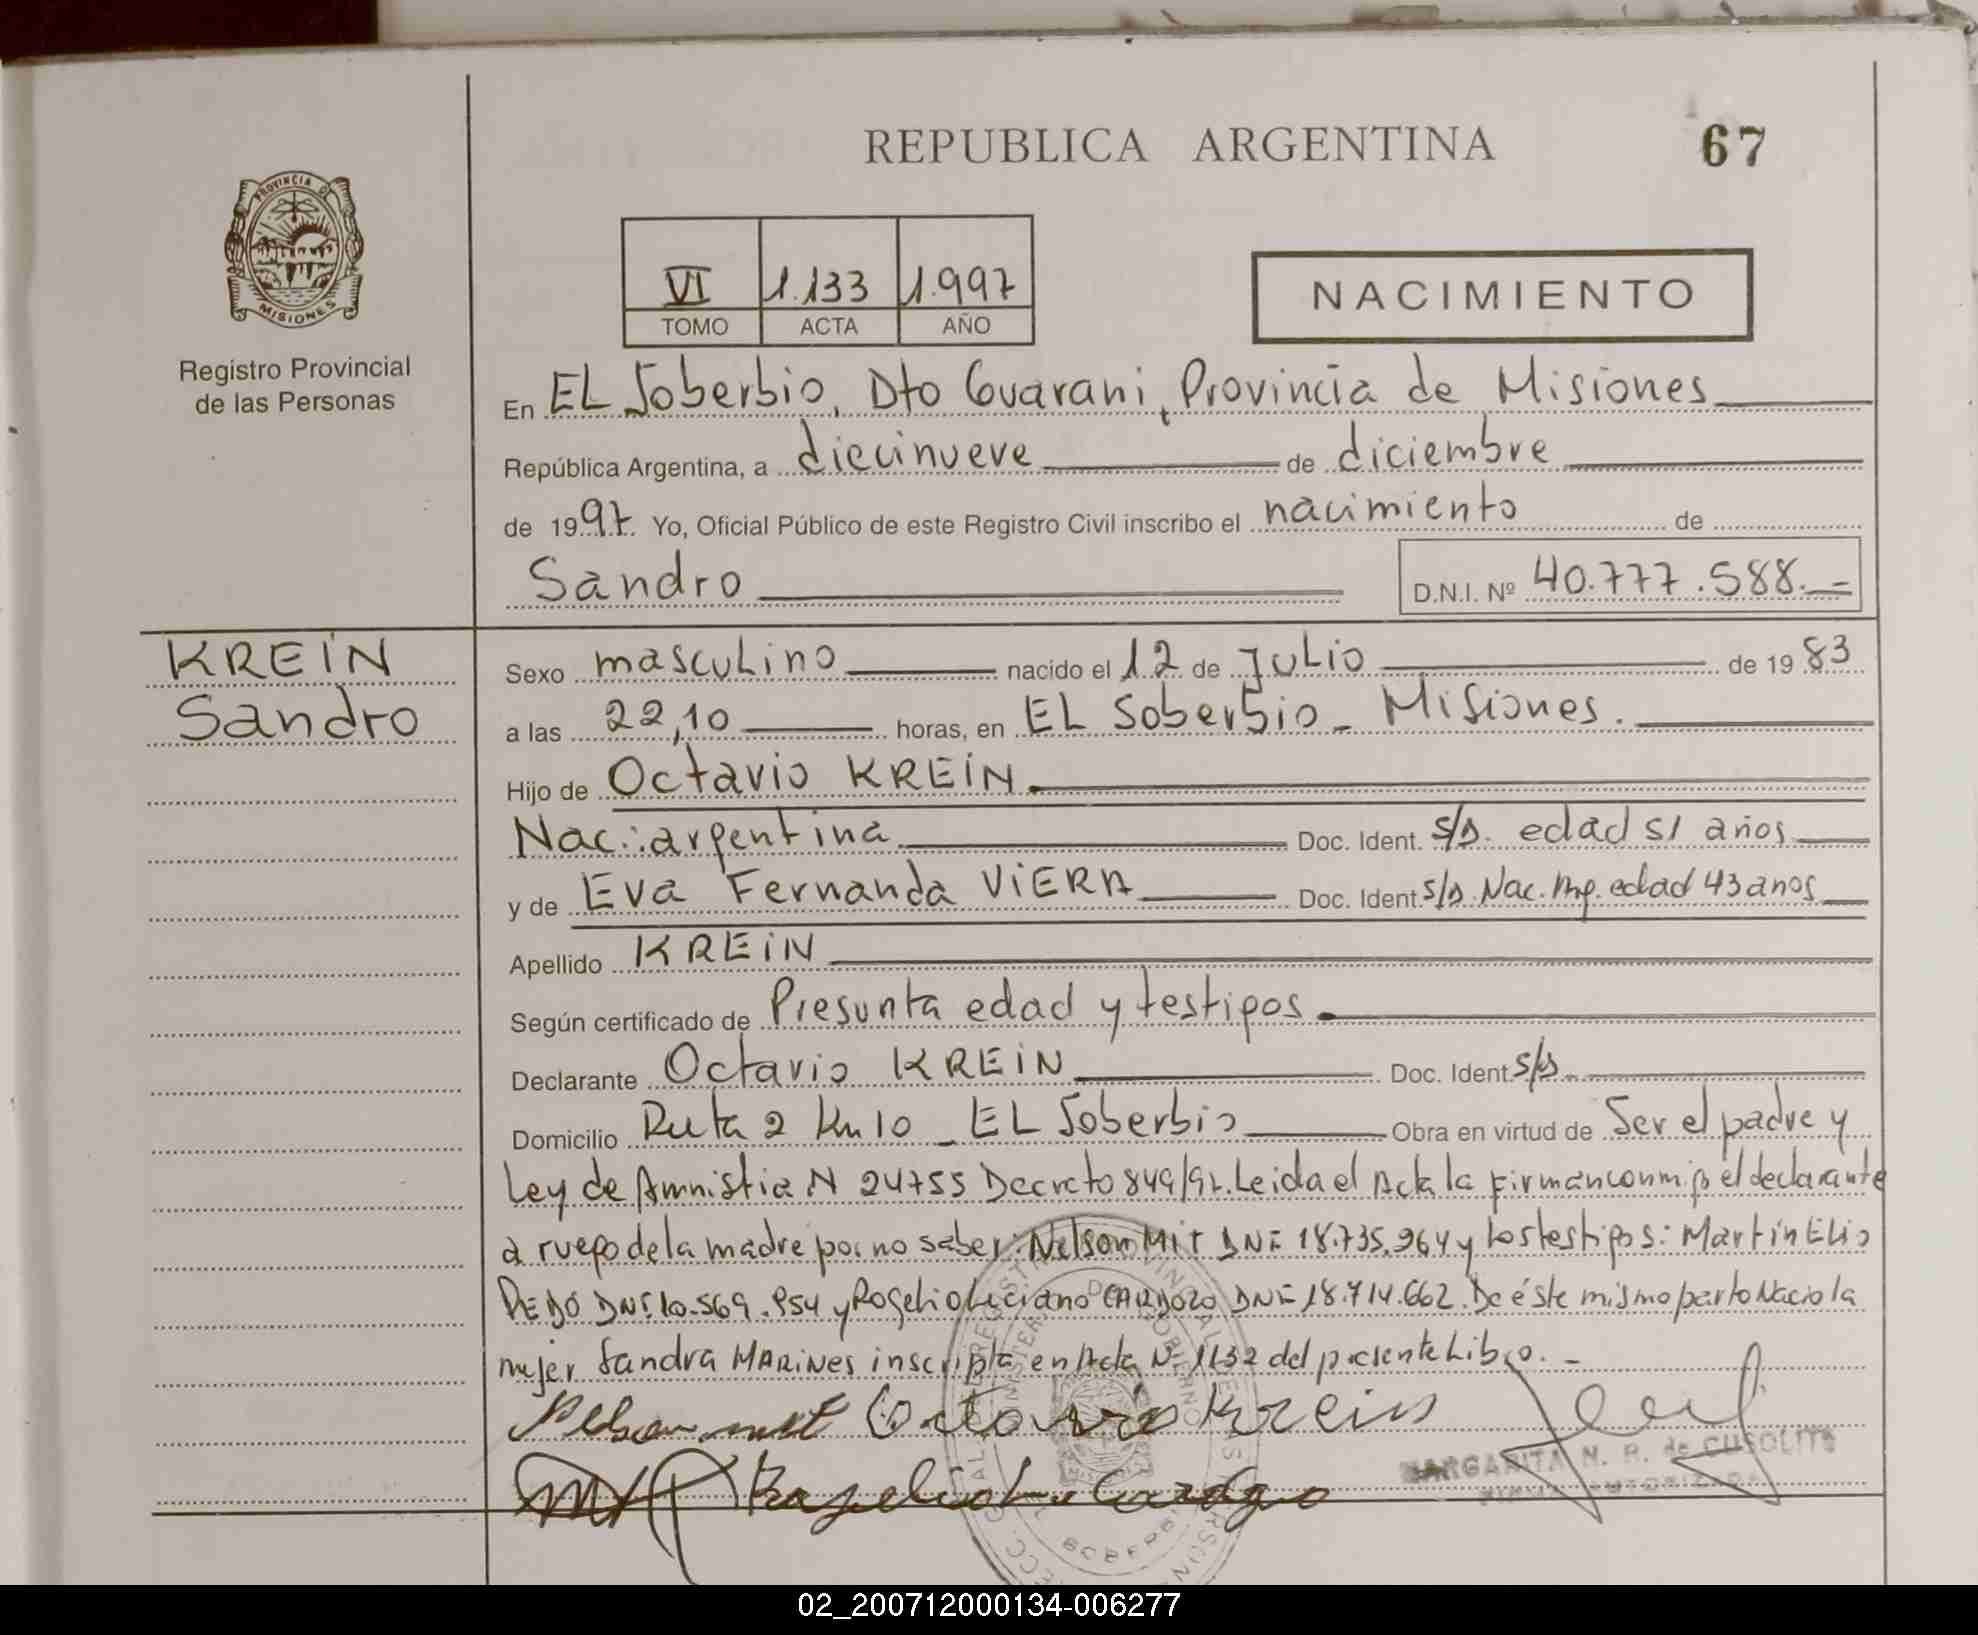 REPUBLICA ARGENTINA
67
PROVINCIA D
MISIONES
Registro Provincial
de las Personas
VI 1.133 1.997
TOMO ACTA AÑO
NACIMIENTO
En EL Soberbio, Dto Guarani, Provincia de Misiones
República Argentina, a diecinueve de diciembre
de 1997. Yo, Oficial Público de este Registro Civil inscribo el nacimiento de
Sandro D.N.I. Nº 40.777.588.=
KREIN
Sandro
Sexo masculino nacido el 12 de Julio de 1983
a las 22,10 horas, en EL Soberbio - Misiones.
Hijo de Octavio KREIN.
Nac: argentina Doc. Ident. s/d. edad 51 años
y de Eva Fernanda VIERA Doc. Ident. s/d. Nac. edad 43 anos
Apellido KREIN
Según certificado de Presunta edad y testigos.
Declarante Octavio KREIN Doc. Ident. s/d.
Domicilio Ruta 2 Km 10 - EL Soberbio Obra en virtud de Ser el padre y
Ley de Amnistia N 24755 Decreto 849/97. Leida el Acta la firman conmigo el declarante
a ruego de la madre por no saber: Nelson Mit DNI 18.735.964 y los testigos: Martín Elio
DNI. 10.569.954 y Rogelio Liciano CARDOZO DNI 18.714.662. De éste mismo parto Nacio la
mujer Sandra MARINES inscripta en Acta Nº 1132 del presente Libro. -
Nelson mit Octavio Krein
Rogelio L. Cardozo
MARGARITA N. R. de CUSOLITO
02_200712000134-006277